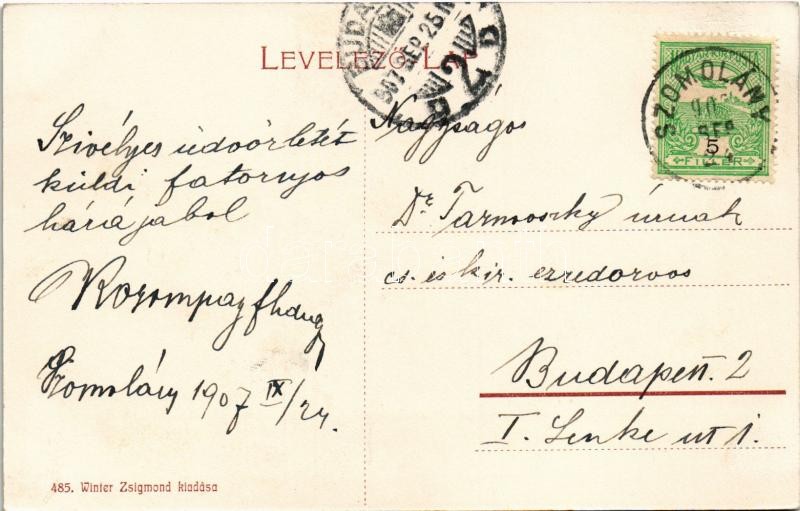 LEVELEZŐ-LAP
BUDAPEST
907 SEP 25
2
SZOMOLÁNY
907 SEP
5
FILLÉR
Szivélyes üdvözletét
küldi fatornyos
hazájabol
Szomolány 1907 IX/24.
Nagyságos
Dr Tarnovszky úrnak
cs. és kir. ezredorvos
Budapest. 2
I. Lenke ut 1.
485. Winter Zsigmond kiadása